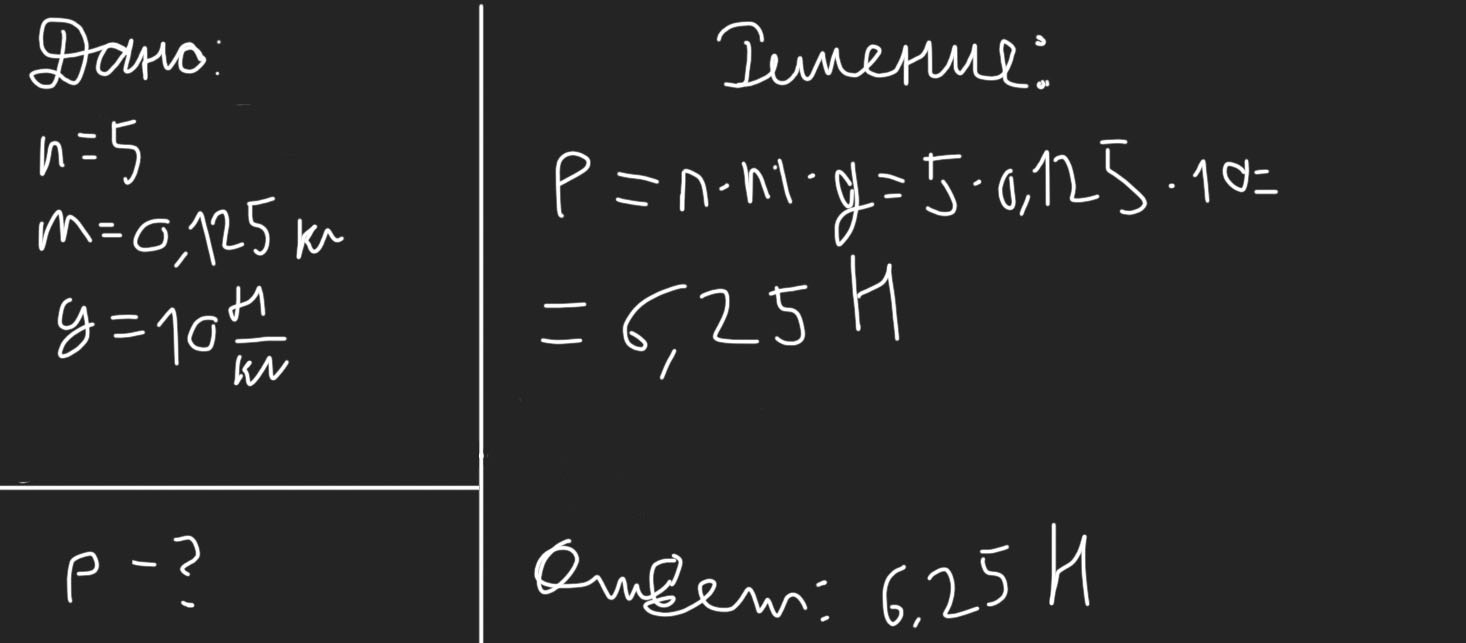 Дано:
n=5
m=0,125 кг
g=10 Н/кг
P-?
Решение:
P=n·m·g=5·0,125·10=
=6,25 Н
Ответ: 6,25 Н